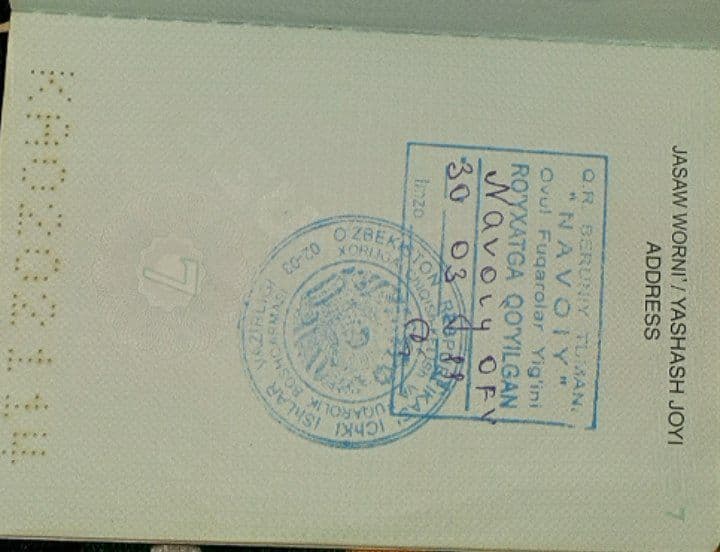 JASAW WORNI' / YASHASH JOYI
7
ADDRESS
Q.R. BERUNIY TUMANI
"NAVOIY"
Ovul Fuqarolar Yig'ini
RO'YXATGA QO'YILGAN
Navoiy OFY
30 03
Imzo
O'ZBEKISTON RESPUBLIKASI ICHKI ISHLAR VAZIRLIGI
XORIJGA CHIQISH-KETISH VA FUQAROLIK BOSHQARMASI
7
KA0202114